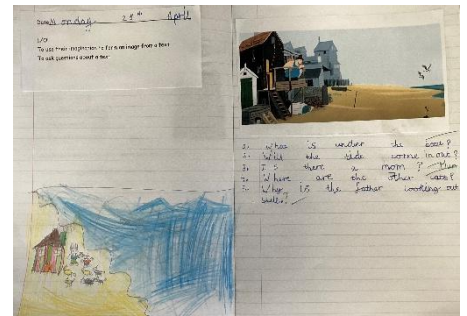 Monday 29th April
L/O:
To use their imagination to form an image from a text
To ask questions about a text
What is under the boat?
Will the tide come in one?
Is there a mom?
Where are the other cats?
Why is the father looking out